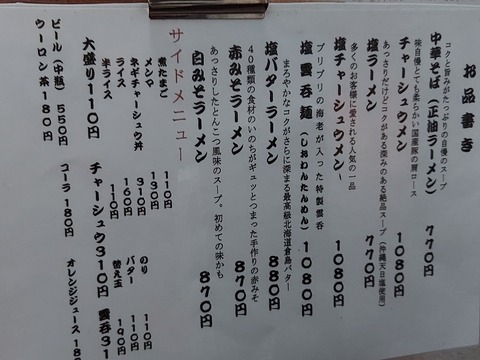 お品書き
中華そば（正油ラーメン） 770円
コクと旨みがたっぷりの自慢のスープ
チャーシュウメン 1080円
味自慢とても柔らかい国産豚の肩ロース
塩ラーメン 770円
あっさりだけどコクがある深みのある絶品スープ（沖縄天日塩使用）
塩チャーシュウメン～ 1080円
多くのお客様に愛される人気の一品
塩雲呑麺（しおわんたんめん） 1080円
プリプリの海老が入った特製雲呑
塩バターラーメン 880円
まろやかなコクがさらに深まる最高級北海道倉島バター
赤みそラーメン 870円
40種類の食材のいのちがギュッとつまった手作りの赤みそ
白みそラーメン 870円
あっさりしたとんこつ風味のスープ。初めての味かも
サイドメニュー
煮たまご 110円
メンマ 130円
ネギチャーシュウ丼 310円
ライス 160円
半ライス 110円
のり 110円
バター 110円
替え玉 190円
大盛り110円 チャーシュウ310円 雲呑31
ビール（中瓶）550円 コーラ180円 オレンジジュース18
ウーロン茶180円